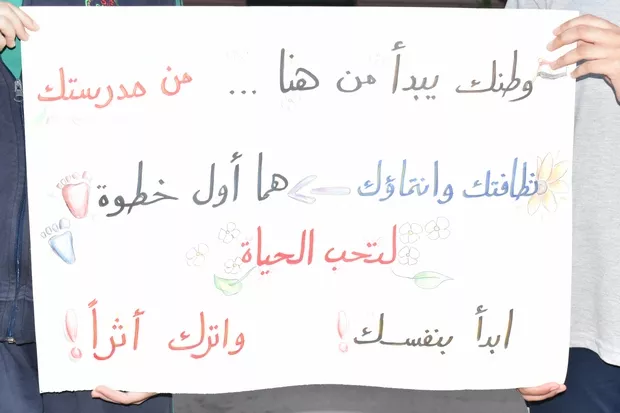 وطنك يبدأ من هنا ... من مدرستك
نظافتك وانتماؤك ← هما أول خطوة
لتحب الحياة
ابدأ بنفسك! واترك أثراً!